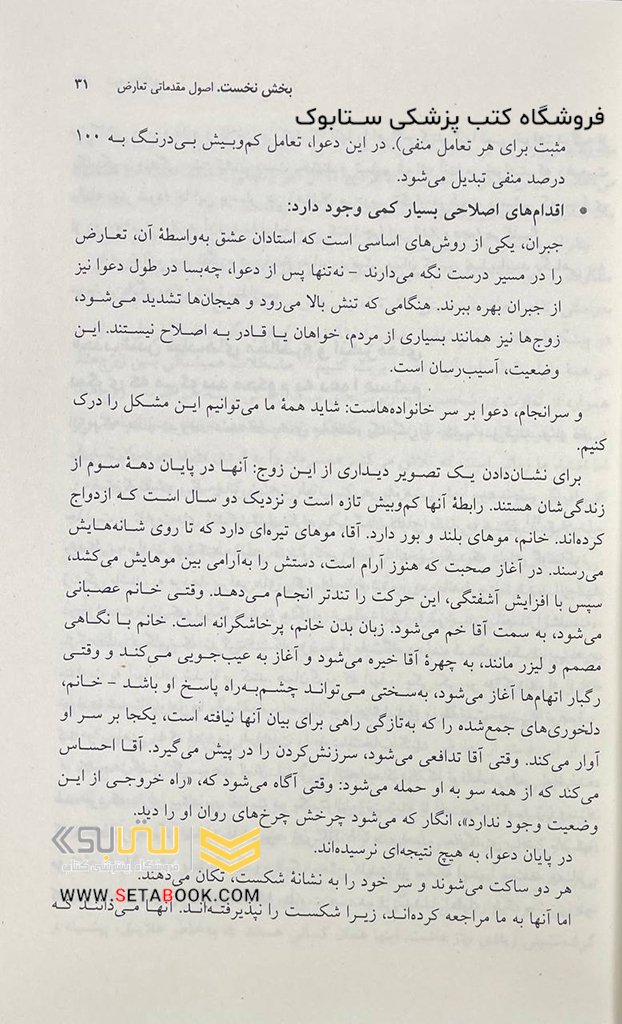 بخش نخست. اصول مقدماتی تعارض ۳۱
فروشگاه کتب پزشکی ستابوک
مثبت برای هر تعامل منفی). در این دعوا، تعامل کم‌وبیش بی‌درنگ به ۱۰۰
درصد منفی تبدیل می‌شود.
• اقدام‌های اصلاحی بسیار کمی وجود دارد:
جبران، یکی از روش‌های اساسی است که استادان عشق به‌واسطهٔ آن، تعارض
را در مسیر درست نگه می‌دارند - نه‌تنها پس از دعوا، چه‌بسا در طول دعوا نیز
از جبران بهره ببرند. هنگامی که تنش بالا می‌رود و هیجان‌ها تشدید می‌شود،
زوج‌ها نیز همانند بسیاری از مردم، خواهان یا قادر به اصلاح نیستند. این
وضعیت، آسیب‌رسان است.
و سرانجام، دعوا بر سر خانواده‌هاست: شاید همهٔ ما می‌توانیم این مشکل را درک
کنیم.
برای نشان‌دادن یک تصویر دیداری از این زوج: آنها در پایان دههٔ سوم از
زندگی‌شان هستند. رابطهٔ آنها کم‌وبیش تازه است و نزدیک دو سال است که ازدواج
کرده‌اند. خانم، موهای بلند و بور دارد. آقا، موهای تیره‌ای دارد که تا روی شانه‌هایش
می‌رسند. در آغاز صحبت که هنوز آرام است، دستش را به‌آرامی بین موهایش می‌کشد،
سپس با افزایش آشفتگی، این حرکت را تندتر انجام می‌دهد. وقتی خانم عصبانی
می‌شود، به سمت آقا خم می‌شود. زبان بدن خانم، پرخاشگرانه است. خانم با نگاهی
مصمم و لیزر مانند، به چهرهٔ آقا خیره می‌شود و آغاز به عیب‌جویی می‌کند و وقتی
رگبار اتهام‌ها آغاز می‌شود، به‌سختی می‌تواند چشم‌به‌راه پاسخ او باشد - خانم،
دلخوری‌های جمع‌شده را که به‌تازگی راهی برای بیان آنها نیافته است، یکجا بر سر او
آوار می‌کند. وقتی آقا تدافعی می‌شود، سرزنش‌کردن را در پیش می‌گیرد. آقا احساس
می‌کند که از همه سو به او حمله می‌شود: وقتی آگاه می‌شود که، «راه خروجی از این
وضعیت وجود ندارد»، انگار که می‌شود چرخش چرخ‌های روان او را دید.
در پایان دعوا، به هیچ نتیجه‌ای نرسیده‌اند.
هر دو ساکت می‌شوند و سر خود را به نشانهٔ شکست، تکان می‌دهند.
اما آنها به ما مراجعه کرده‌اند، زیرا شکست را نپذیرفته‌اند. آنها می‌دانند که
فروشگاه اینترنتی کتاب
WWW.SETABOOK.COM